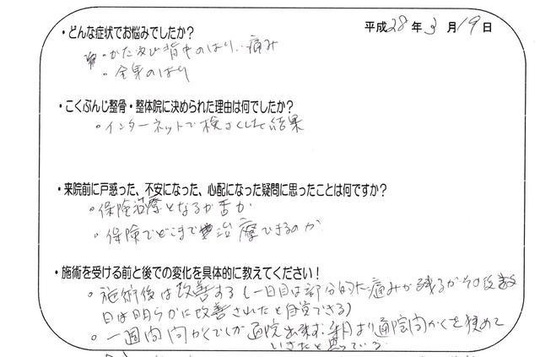 平成28年3月19日
・どんな症状でお悩みでしたか？
・かた及び背中のはり、痛み
・全身のはり
・こくぶんじ整骨・整体院に決められた理由は何でしたか？
・インターネットで検さくした結果
・来院前に戸惑った、不安になった、心配になった疑問に思ったことは何ですか？
・保険治療となるか否か
・保険でどこまで治療できるのか
・施術を受ける前と後での変化を具体的に教えてください！
・施術後は改善する（一日目は部分的な痛みが残るがその後数
日は明らかに改善されたと自覚できる）
・一週間間かくでしか通院出来ず、 より通院間かくを狭めて
いきたいと思っている